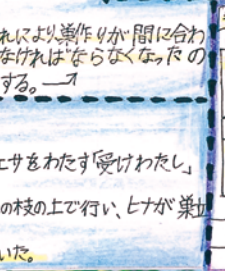 れにより巣作りが間に合わ
なければならなくなったの
する。→
エサをわたす「受けわたし」
の枝の上で行い、ヒナが巣立
いた。